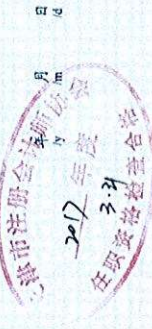 津市注册会计师协会
2017 年度
3.31
任职资格检查合格
年 月 日
/y /m /d